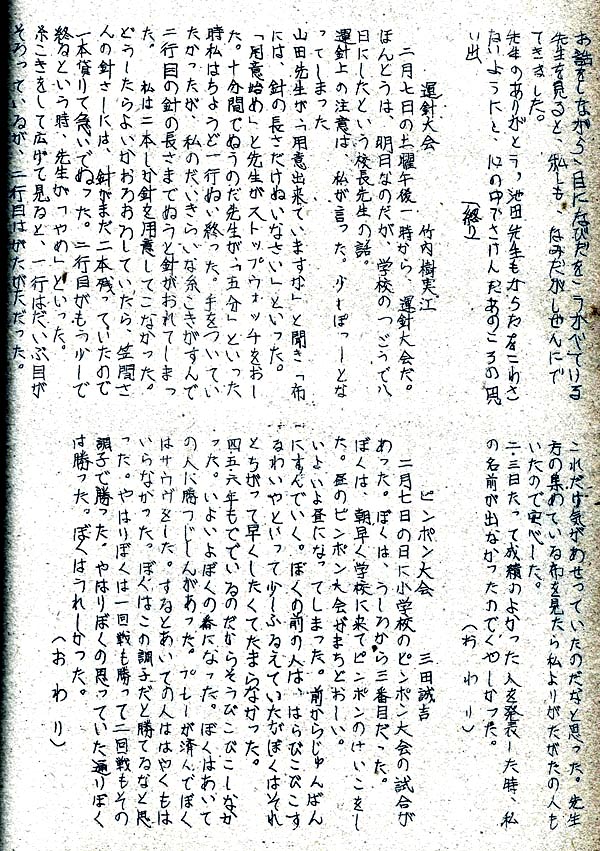 お話をしながら、目になみだをうかべている
先生を見ると、私しも、なみだがしぜんにで
てきました。
先生のありがとう、池田先生もからだをこわさ
ないようにと、心の中でさけんだあのころの思
い出、
(終り)
運針大会 竹内樹実江
二月七日の土曜午後一時から、運針大会だ。
ほんとうは、明日なのだが、学校のつごうで八
日にしたという校長先生の話。
運針上の注意は、私が言った。少しぼーっとな
ってしまった
山田先生が「用意出来ていますな」と聞き「布
には、針の長さだけぬいなさい」といった。
「用意始め」と先生がストップウォッチをおし
た。十分間でぬうのだ先生が「五分」といった
時私はちょうど一行ぬい終った。手をついてい
たかったが、私のだいきらいな糸こきがすんで
二行目の針の長さまでぬうと針がおれてしまっ
た。 私は二本しか針を用意してこなかった。
どうしたらよいかおろおろしていたら、笠間さ
んの針さしには、針がまだ二本残っていたので
一本貸りて急いでぬった。二行目がもう少しで
終るという時、先生が「やめ」といった。
糸こきをして広げて見ると、一行はだいぶ目が
そろっているが、二行目はがたがただった。
これだけ気があせっていたのだなと思った。先生
方の集めている布を見たら私よりがたがたの人も
いたので安心した。
二・三日たって成績のよかった人を発表した時、私
の名前が出なかったのでくやしかった。
(おわり)
ピンポン大会 三田誠吉
二月七日の日に小学校のピンポン大会の試合が
あった。ぼくは、うしろから三番目だった。
ぼくは、朝早く学校に来てピンポンのけいこをし
た。昼のピンポン大会がまちどおしい。
いよいよ昼になってしまった。前からじゅんばん
にすんでいく。ぼくの前の人は、はらぴこぴこす
るわいやといって少しふるえていたがぼくはそれ
とちがって早くしたくてたまらなかった。
四五六年もでているのだからそうぴこぴこしなか
った。いよいよぼくの番になった。ぼくはあいて
の人に勝つじしんがあった。プレーが済んでぼく
はサウヴをした。するとあいての人ははやくもは
いらなかった。ぼくはこの調子だと勝てるなと思
った。やはりぼくは一回戦も勝って二回戦もその
調子で勝った。やはりぼくの思っていた通りぼく
は勝った。ぼくはうれしかった。
(おわり)